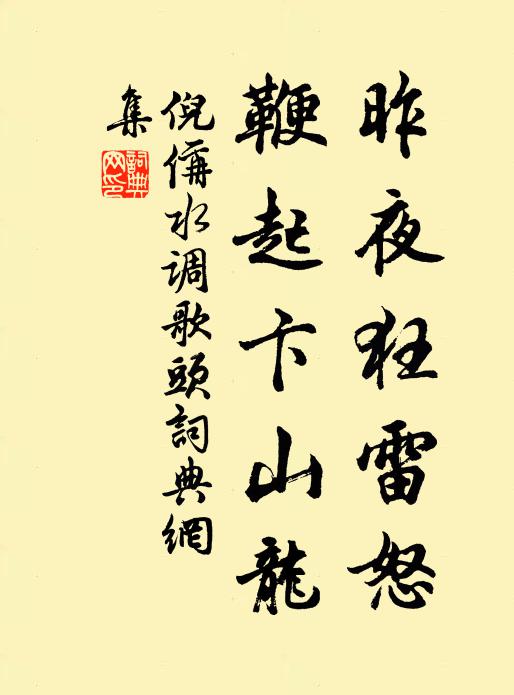 昨夜狂雷怒
鞭起卞山龍
倪偁水调歌頭詞典網
集
詞典
网印